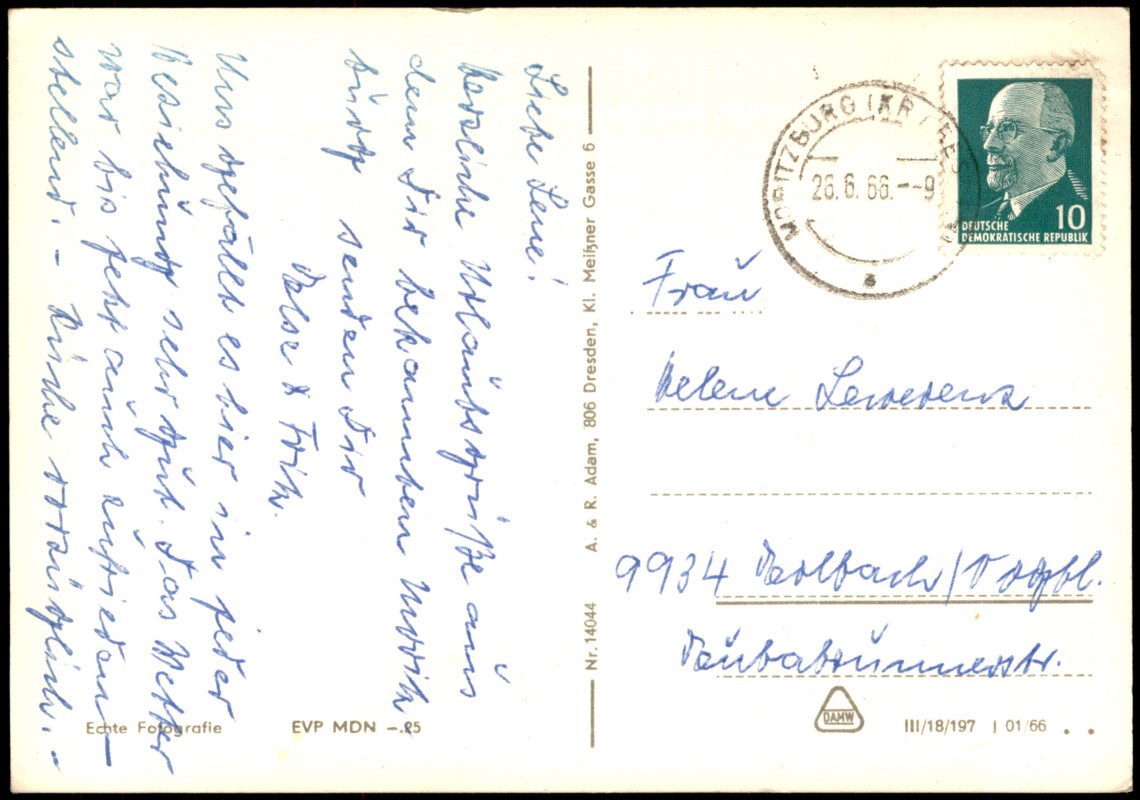 Liebe Lene!
Herzliche Urlaubsgrüße aus
dem Dir bekannten Moritz
burg senden Dir
Ilse & Fritz.
Uns gefällt es hier in jeder
Beziehung sehr gut. Das Wetter
war bis jetzt auch zufrieden-
stellend. - Küche vorzüglich. -
Echte Fotografie
EVP MDN –.25
Nr. 14044
A. & R. Adam, 806 Dresden, Kl. Meißner Gasse 6
MORITZBURG (KR
26.6.66.--9
a
10
DEUTSCHE
DEMOKRATISCHE REPUBLIK
Frau
Helene Lewerenz
9934 Bad Elster
DAMW
III/18/197 J 01/66